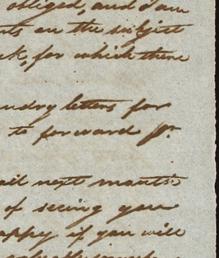 obliged, and I am
nts on the subject
ck, for which there
ndry letters for
to forward pr.
ail next month
of seeing you
appy if you will